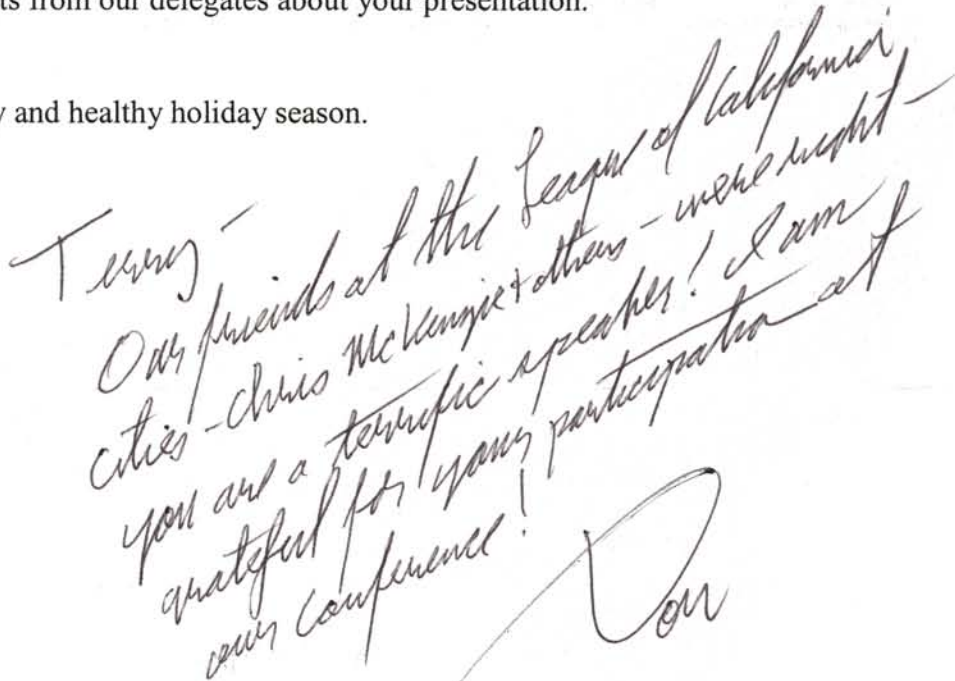 ts from our delegates about your presentation.
y and healthy holiday season.
Terry -
Our friends at the League of California
cities - Chris McKenzie + others - were right -
you are a terrific speaker! I am
grateful for your participation at
our conference!
Don